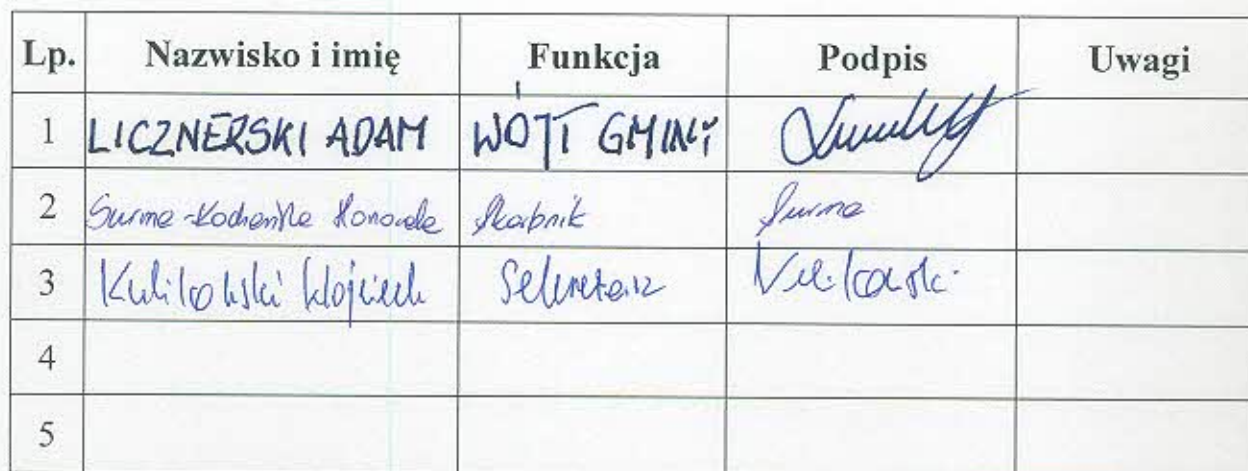 Lp. Nazwisko i imię Funkcja Podpis Uwagi
1 LICZNERSKI ADAM WÓJT GMINY
2 Surma-Kochańska Skarbnik Surma
3 Kulikowski Wojciech Sekretarz Kulikowski
4
5